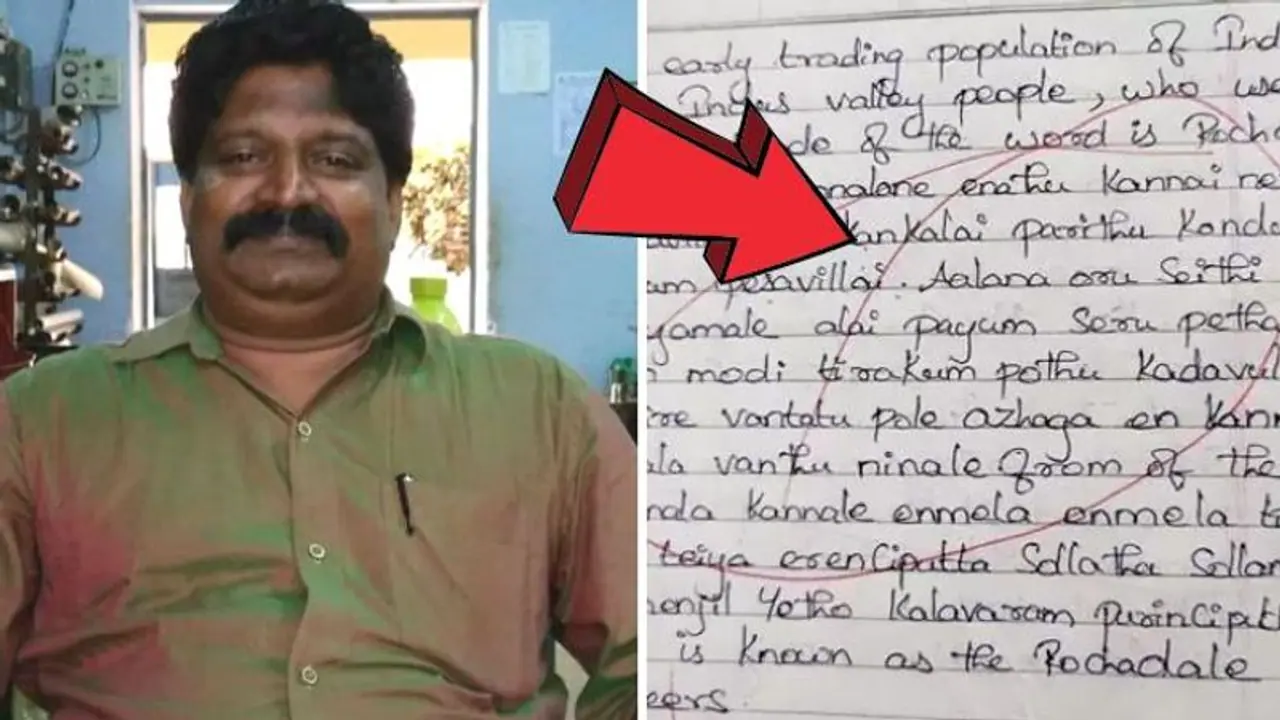 early trading population of Ind
Indus valley people, who use
de of the word is Rocha
nalane enathu Kannai ne
ankalai parithu Konda
am pesavillai. Aalana oru Seithi
yamale alai payum Seru petha
modi tirakum pothu Kadavul
re vantatu pole azhaga en Kann
la vanthu ninale from of the
nda Kannale enmela enmela t
teiya erenciputta Sollatha Sollam
nenjil Yetho Kalavaram purinciput
is known as the Rochadale
eers.